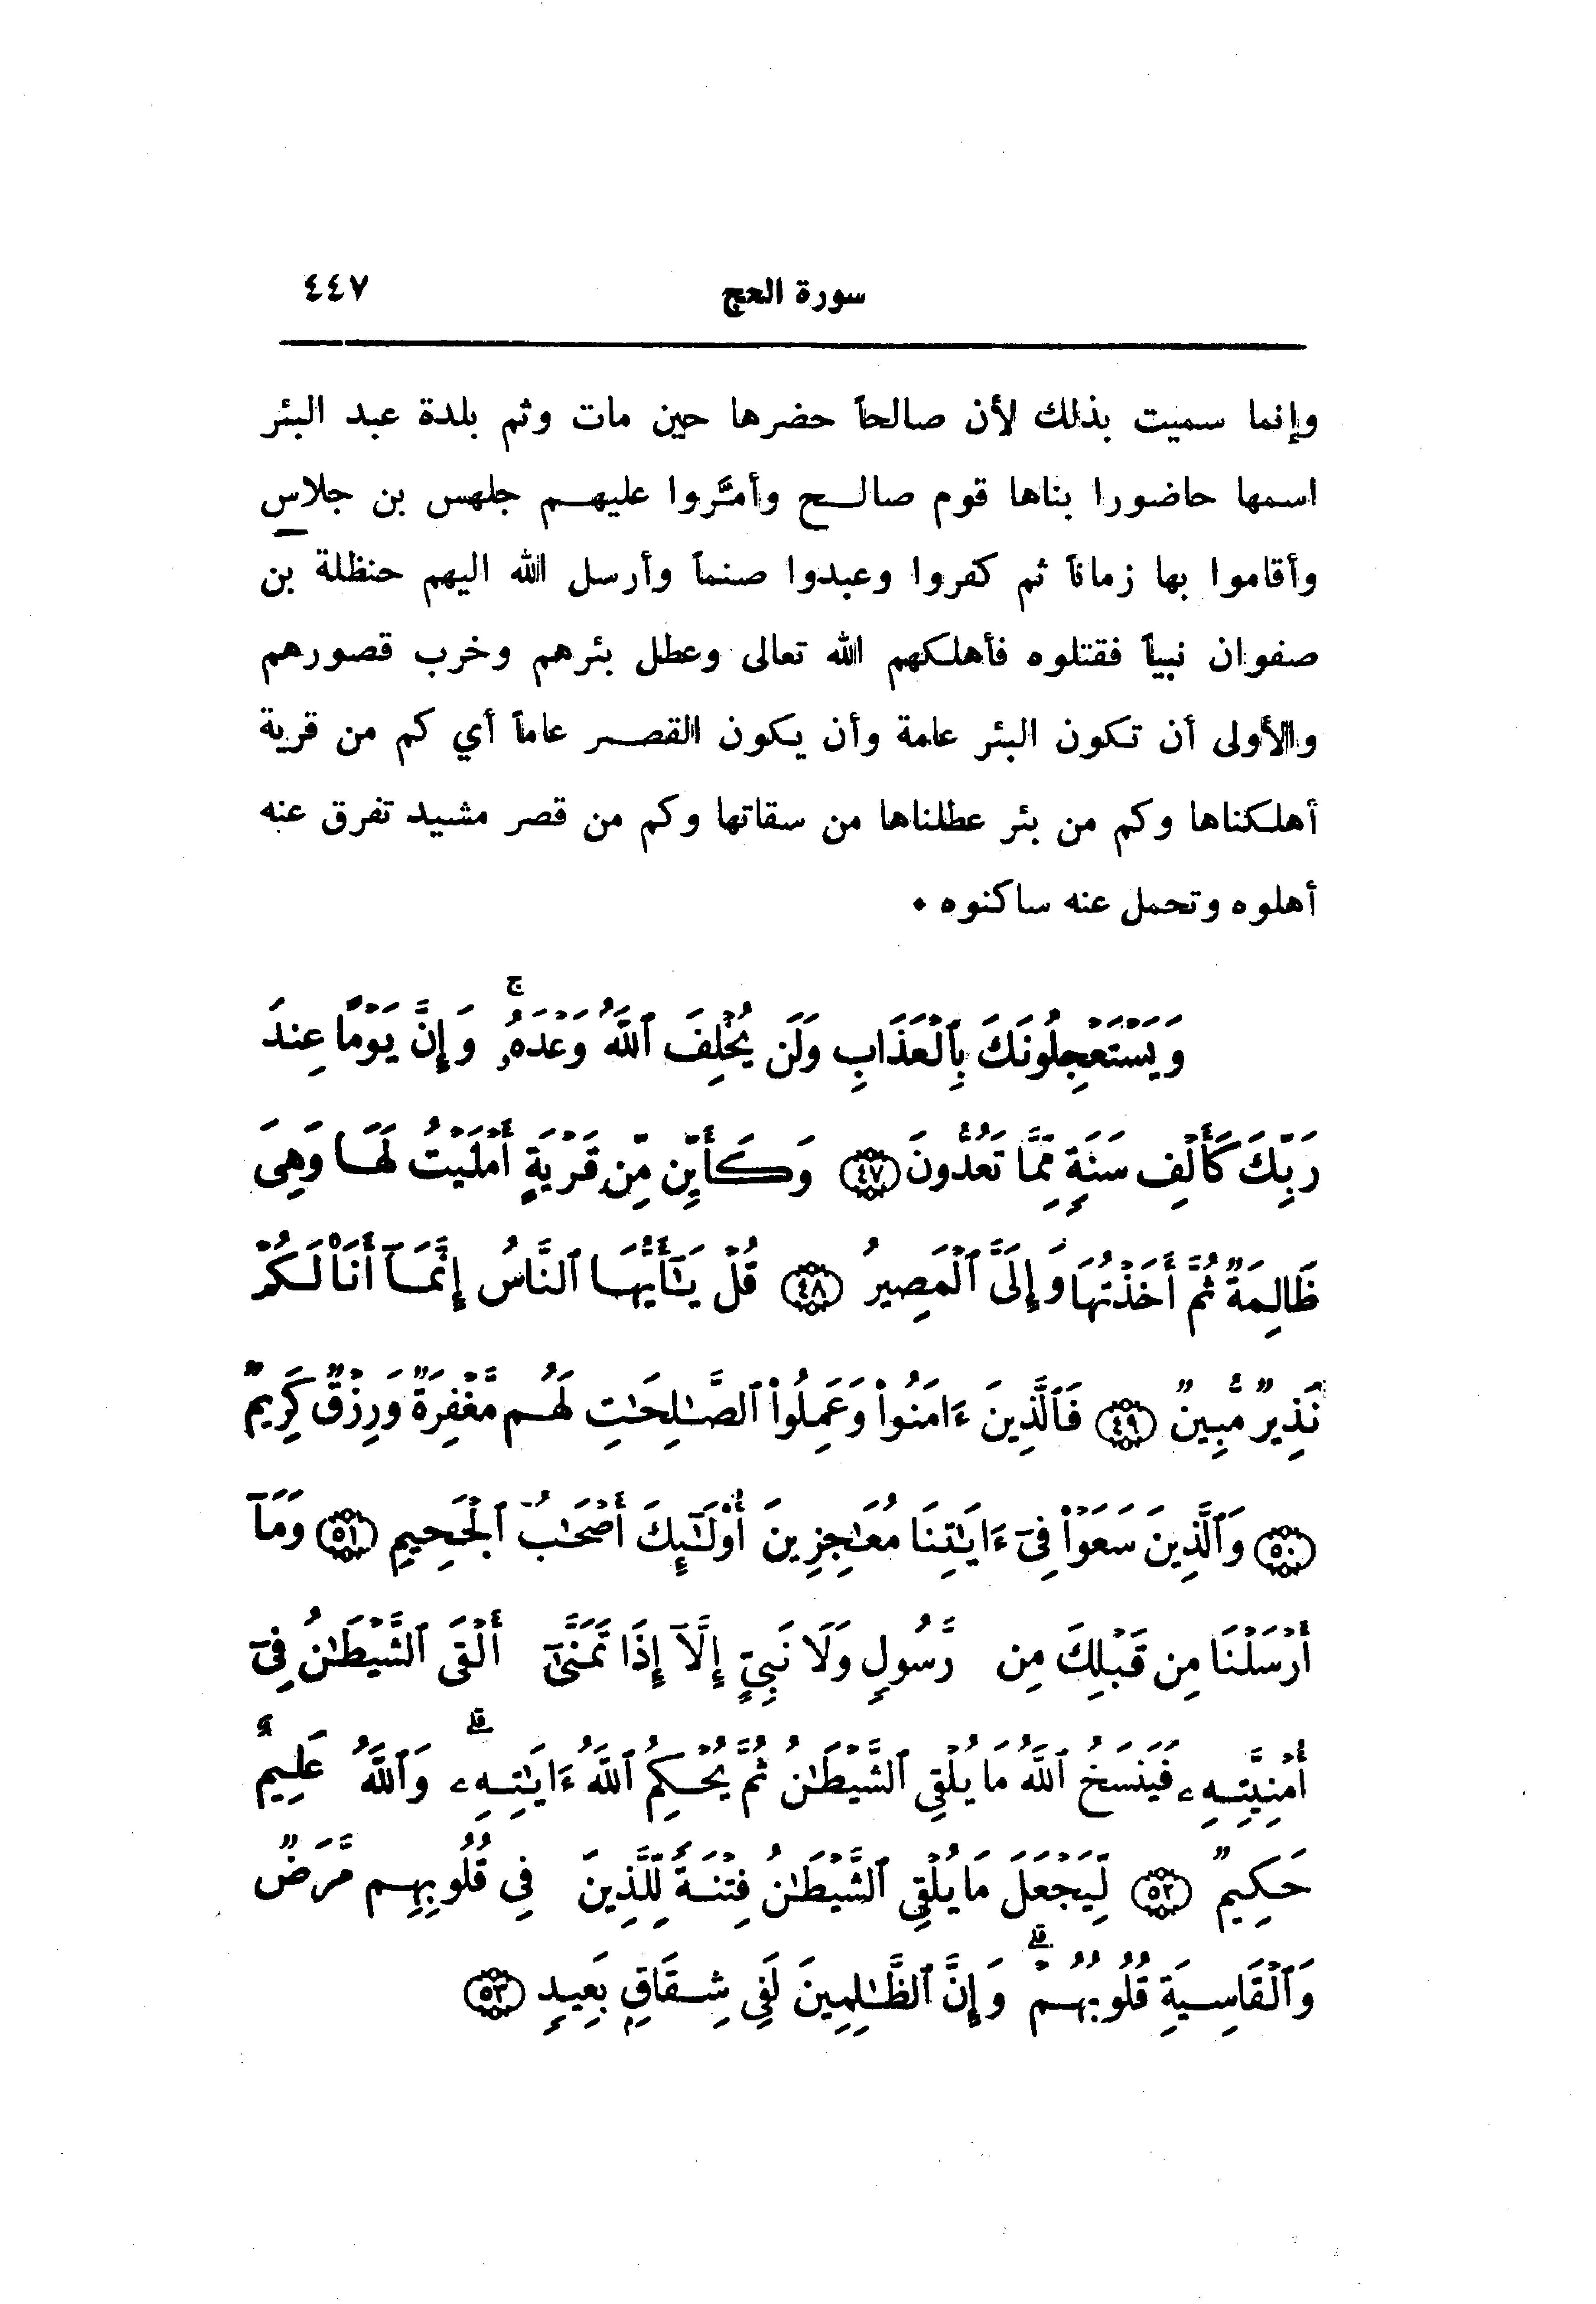 سورة الحج ٤٤٧
وإنما سميت بذلك لأن صالحاً حضرها حين مات وثم بلدة عبد البئر
اسمها حاضورا بناها قوم صالح وأمَّروا عليهم جلهس بن جلاس
وأقاموا بها زماناً ثم كفروا وعبدوا صنماً وأرسل الله اليهم حنظلة بن
صفوان نبياً فقتلوه فأهلكهم الله تعالى وعطل بئرهم وخرب قصورهم
والأولى أن تكون البئر عامة وأن يكون القصر عاماً أي كم من قرية
أهلكناها وكم من بئر عطلناها من سقاتها وكم من قصر مشيد تفرق عنه
أهلوه وتحمل عنه ساكنوه ٠
وَيَسْتَعْجِلُونَكَ بِٱلْعَذَابِ وَلَن يُخْلِفَ ٱللَّهُ وَعْدَهُۥ ۚ وَإِنَّ يَوْمًا عِندَ
رَبِّكَ كَأَلْفِ سَنَةٍ مِّمَّا تَعُدُّونَ ﴿٤٧﴾ وَكَأَيِّن مِّن قَرْيَةٍ أَمْلَيْتُ لَهَا وَهِىَ
ظَالِمَةٌ ثُمَّ أَخَذْتُهَا وَإِلَىَّ ٱلْمَصِيرُ ﴿٤٨﴾ قُلْ يَـٰٓأَيُّهَا ٱلنَّاسُ إِنَّمَآ أَنَا۠ لَكُمْ
نَذِيرٌ مُّبِينٌ ﴿٤٩﴾ فَٱلَّذِينَ ءَامَنُوا۟ وَعَمِلُوا۟ ٱلصَّـٰلِحَـٰتِ لَهُم مَّغْفِرَةٌ وَرِزْقٌ كَرِيمٌ
﴿٥٠﴾ وَٱلَّذِينَ سَعَوْا۟ فِىٓ ءَايَـٰتِنَا مُعَـٰجِزِينَ أُو۟لَـٰٓئِكَ أَصْحَـٰبُ ٱلْجَحِيمِ ﴿٥١﴾ وَمَآ
أَرْسَلْنَا مِن قَبْلِكَ مِن رَّسُولٍ وَلَا نَبِىٍّ إِلَّآ إِذَا تَمَنَّىٰٓ أَلْقَى ٱلشَّيْطَـٰنُ فِىٓ
أُمْنِيَّتِهِۦ فَيَنسَخُ ٱللَّهُ مَا يُلْقِى ٱلشَّيْطَـٰنُ ثُمَّ يُحْكِمُ ٱللَّهُ ءَايَـٰتِهِۦ ۗ وَٱللَّهُ عَلِيمٌ
حَكِيمٌ ﴿٥٢﴾ لِّيَجْعَلَ مَا يُلْقِى ٱلشَّيْطَـٰنُ فِتْنَةً لِّلَّذِينَ فِى قُلُوبِهِم مَّرَضٌ
وَٱلْقَاسِيَةِ قُلُوبُهُمْ ۗ وَإِنَّ ٱلظَّـٰلِمِينَ لَفِى شِقَاقٍ بَعِيدٍ ﴿٥٣﴾